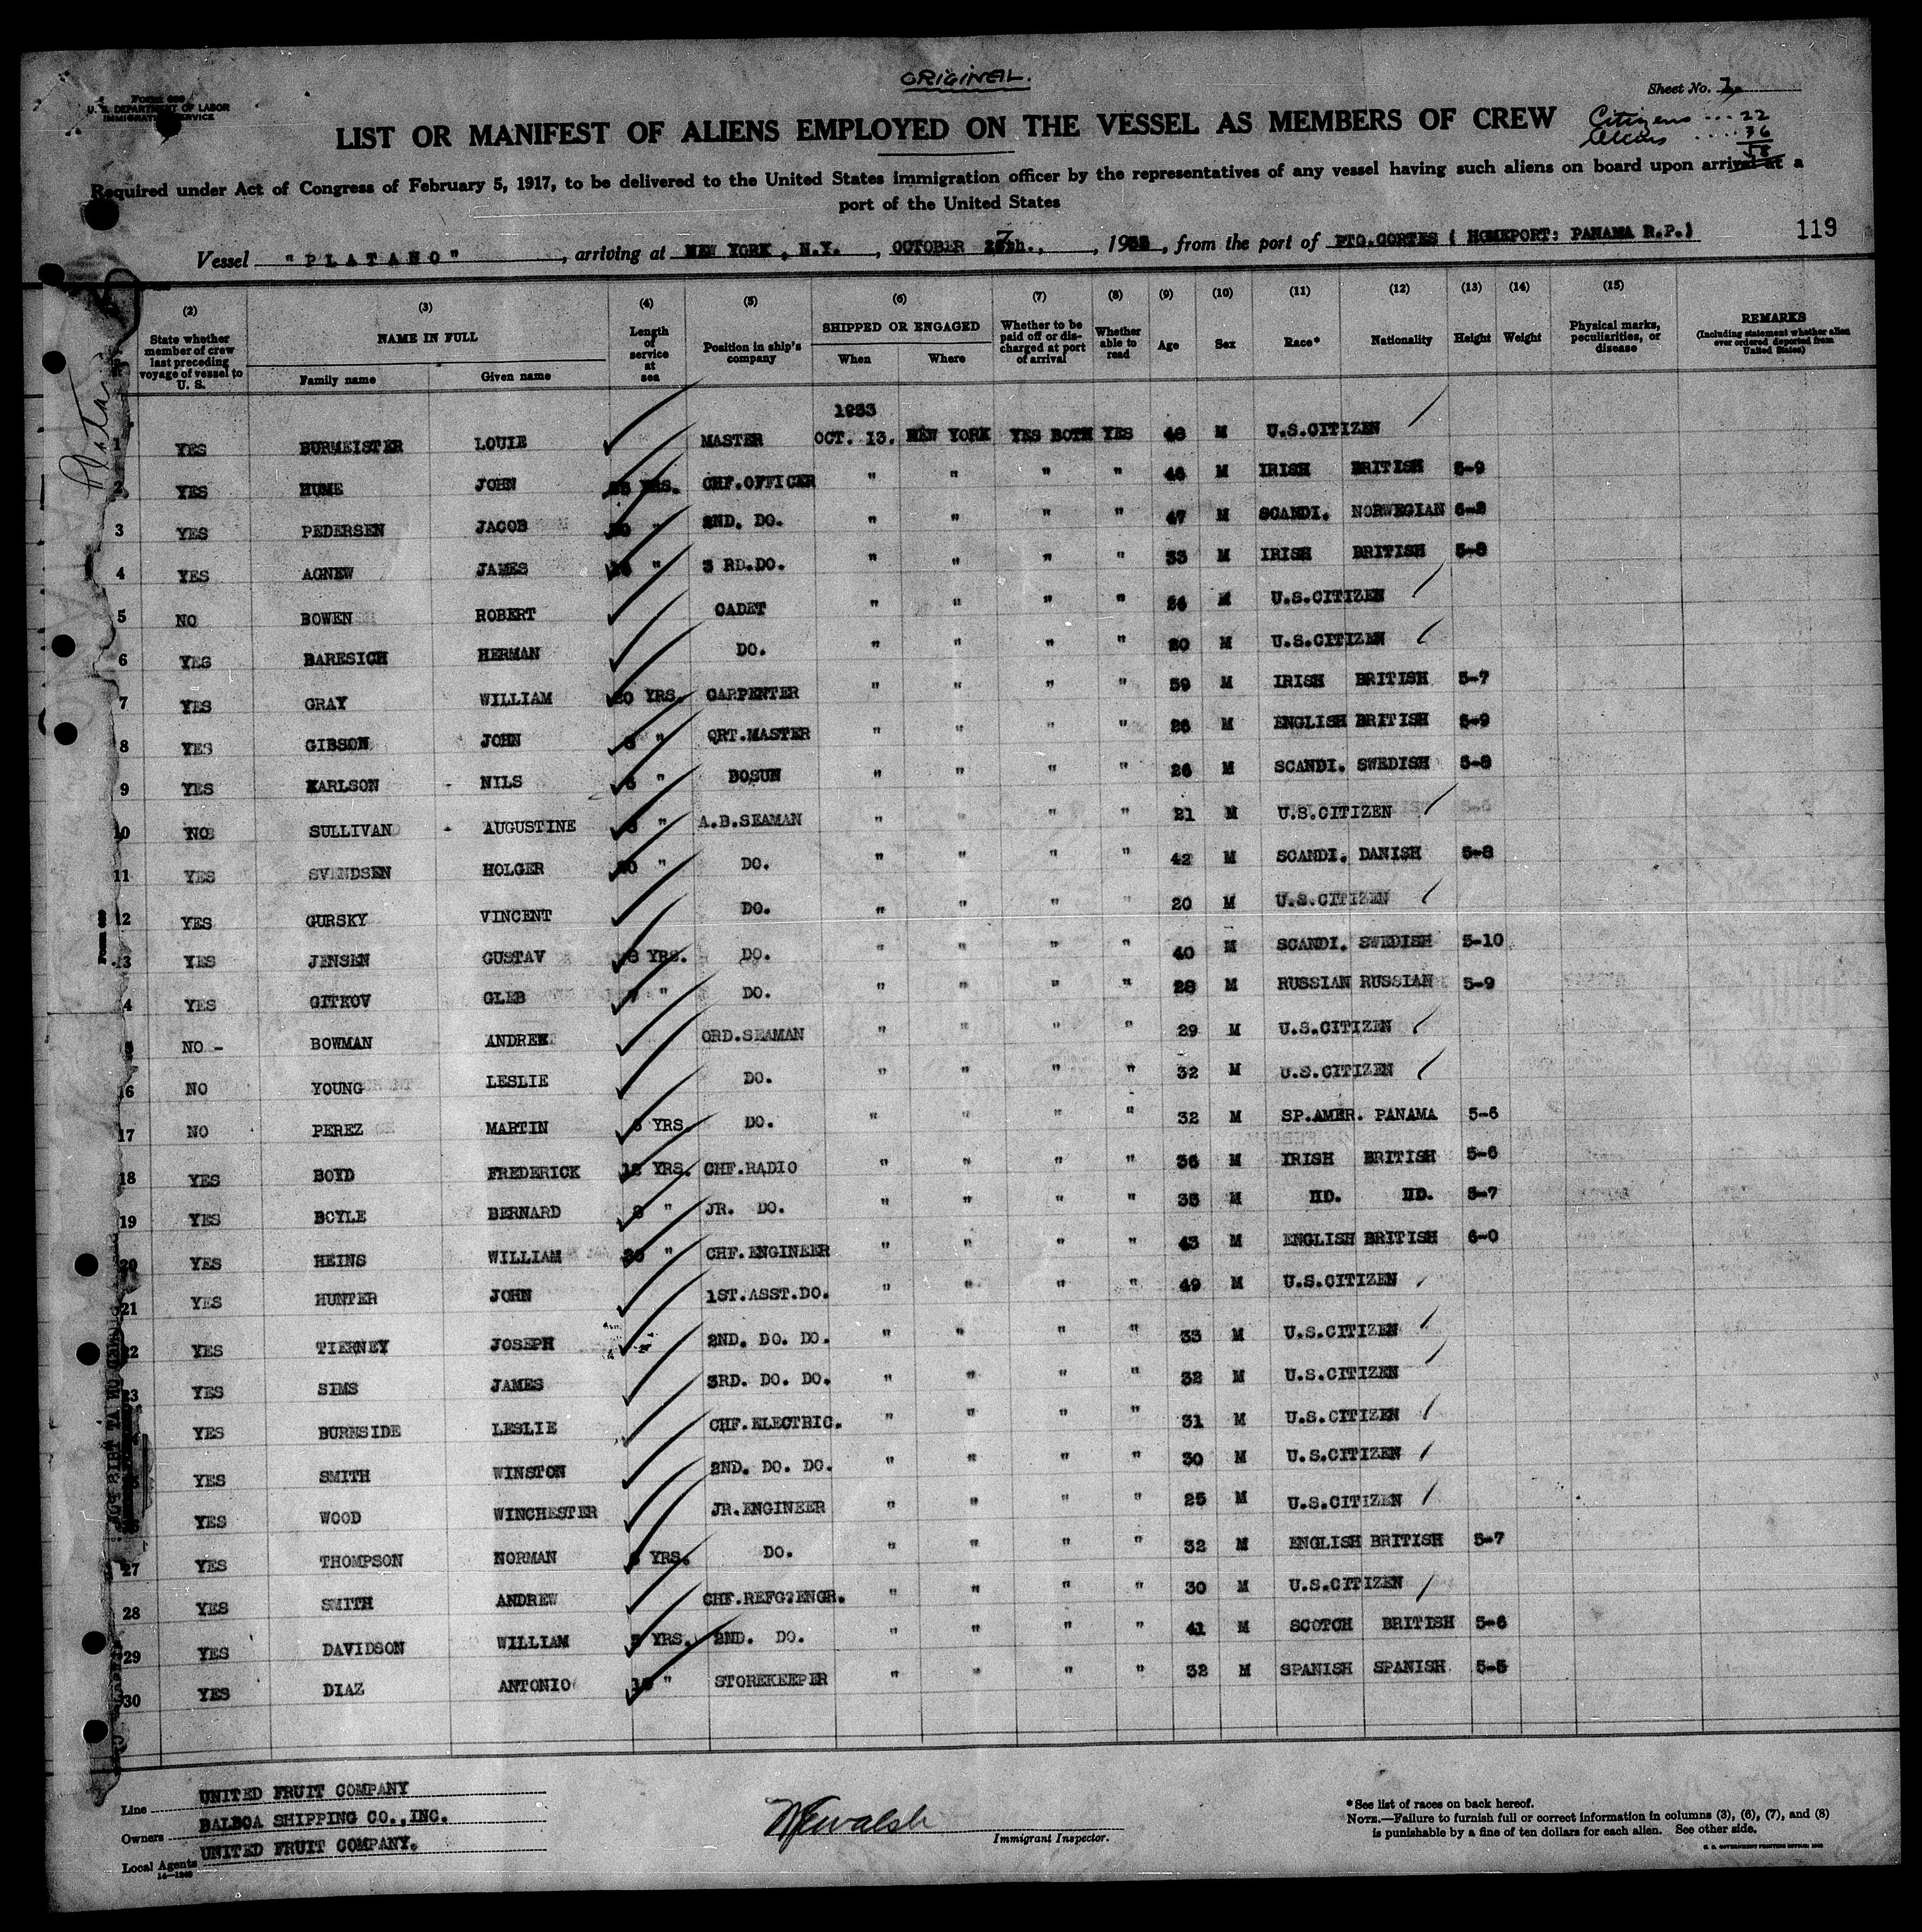 ORIGINAL.
U. S. DEPARTMENT OF LABOR
IMMIGRATION SERVICE
Sheet No.
LIST OR MANIFEST OF ALIENS EMPLOYED ON THE VESSEL AS MEMBERS OF CREW
Citizens ... 22
Aliens .... 36
58
Required under Act of Congress of February 5, 1917, to be delivered to the United States immigration officer by the representatives of any vessel having such aliens on board upon arrival at a
port of the United States
119
Vessel "PLATANO", arriving at NEW YORK, N.Y., OCTOBER , 19 , from the port of PTO.CORTES ( HOMEPORT: PANAMA R.P.)
(2) (3) (4) (5) (6) (7) (8) (9) (10) (11) (12) (13) (14) (15)
State whether member of crew last preceding voyage of vessel to U. S. NAME IN FULL Length of service at sea Position in ship's company SHIPPED OR ENGAGED Whether to be paid off or discharged at port of arrival Whether able to read Age Sex Race* Nationality Height Weight Physical marks, peculiarities, or disease REMARKS (Including statement whether alien ever ordered deported from United States)
Family name Given name When Where
1933
1 YES BURMEISTER LOUIE MASTER OCT. 13. NEW YORK YES BOTH YES 48 M U.S.CITIZEN
2 YES HUME JOHN YRS. CHF.OFFICER " " " " 46 M IRISH BRITISH 5-9
3 YES PEDERSEN JACOB " 2ND. DO. " " " " 47 M SCANDI. NORWEGIAN
4 YES AGNEW JAMES " 3 RD.DO. " " " " 33 M IRISH BRITISH 5-8
5 NO BOWEN ROBERT CADET " " " " M U.S.CITIZEN
6 YES BARESICH HERMAN DO. " " " " 20 M U.S.CITIZEN
7 YES GRAY WILLIAM 20 YRS. CARPENTER " " " " 59 M IRISH BRITISH 5-7
8 YES GIBSON JOHN " QRT.MASTER " " " " 26 M ENGLISH BRITISH 5-9
9 YES KARLSON - NILS " BOSUN " " " " 26 M SCANDI. SWEDISH 5-8
10 NO SULLIVAN AUGUSTINE " A.B.SEAMAN " " " " 21 M U.S.CITIZEN
11 YES SVENDSEN HOLGER " DO. " " " " 42 M SCANDI. DANISH 5-8
12 YES GURSKY VINCENT DO. " " " " 20 M U.S.CITIZEN
13 YES JENSEN GUSTAV YRS. DO. " " " " 40 M SCANDI. SWEDISH 5-10
4 YES GITKOV GLEB " DO. " " " " 28 M RUSSIAN RUSSIAN 5-9
NO - BOWMAN ANDREW ORD.SEAMAN " " " " 29 M U.S.CITIZEN
16 NO YOUNG LESLIE DO. " " " " 32 M U.S.CITIZEN
17 NO PEREZ MARTIN YRS. DO. " " " " 32 M SP.AMER. PANAMA 5-6
18 YES BOYD FREDERICK YRS. CHF.RADIO " " " " 36 M IRISH BRITISH 5-6
19 YES BOYLE BERNARD " JR. DO. " " " " 35 M DO. DO. 5-7
20 YES HEINS WILLIAM " CHF.ENGINEER " " " " 43 M ENGLISH BRITISH 6-0
21 YES HUNTER JOHN 1ST.ASST.DO. " " " " 49 M U.S.CITIZEN
22 YES TIERNEY JOSEPH 2ND. DO. DO. " " " " 33 M U.S.CITIZEN
23 YES SIMS JAMES 3RD. DO. DO. " " " " 32 M U.S.CITIZEN
YES BURNSIDE LESLIE CHF.ELECTRIC. " " " " 31 M U.S.CITIZEN
YES SMITH WINSTON 2ND. DO. DO. " " " " 30 M U.S.CITIZEN
YES WOOD WINCHESTER JR.ENGINEER " " " " 25 M U.S.CITIZEN
27 YES THOMPSON NORMAN YRS. DO. " " " " 32 M ENGLISH BRITISH 5-7
28 YES SMITH ANDREW CHF.REFG?ENGR. " " " " 30 M U.S.CITIZEN
29 YES DAVIDSON WILLIAM YRS. 2ND. DO. " " " " 41 M SCOTCH BRITISH 5-6
30 YES DIAZ ANTONIO " STOREKEEPER " " " " 32 M SPANISH SPANISH 5-5
Line UNITED FRUIT COMPANY
Owners BALBOA SHIPPING CO.,INC.
Local Agents UNITED FRUIT COMPANY.
Immigrant Inspector.
*See list of races on back hereof.
NOTE.—Failure to furnish full or correct information in columns (3), (6), (7), and (8)
is punishable by a fine of ten dollars for each alien. See other side.